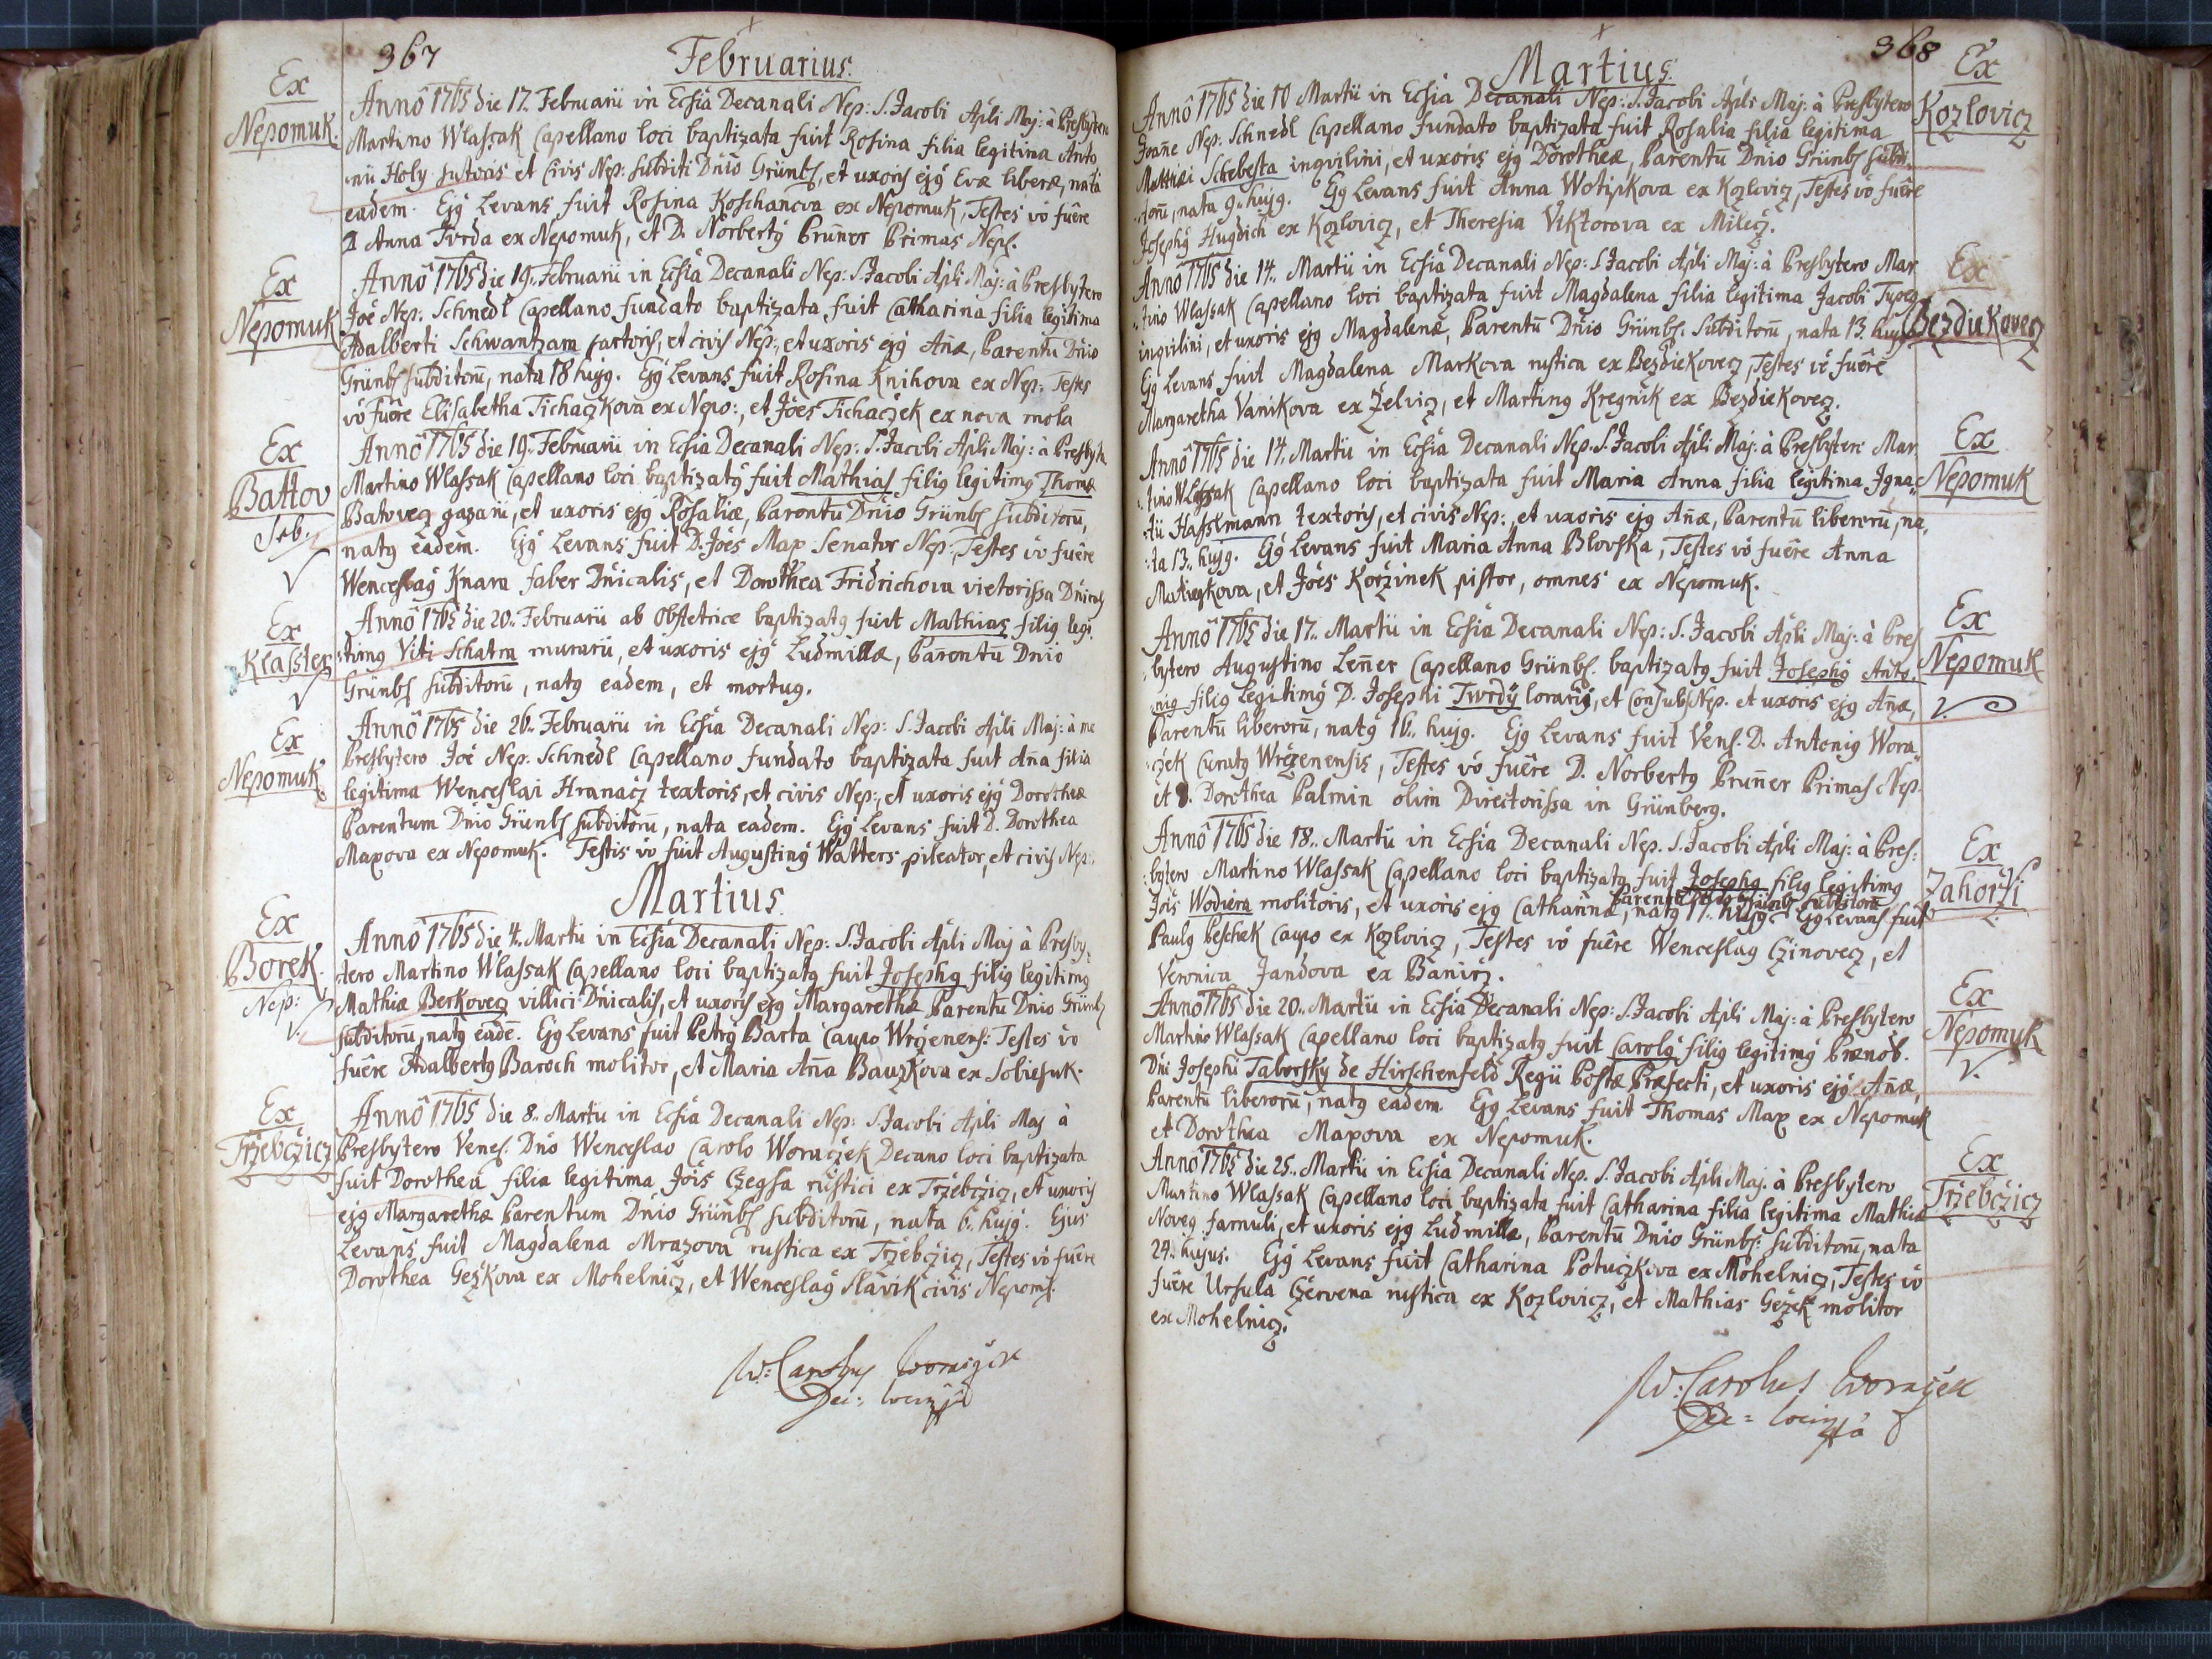 367 Februarius.
Ex
Nepomuk.
Annô 1765 die 17. Februarii in Ecſia Decanali Nep: S. Jacobi Apli Maj: à Presbytero
Martino Wlaſsak Capellano loci baptizata fuit Rosina filia legitima Anto,
nii Holy sutoris et Civis Nep: subditi Dnio Grünb, et uxoris ejg Evæ liberæ, nata
eadem. Ejg Levans fuit Rosina Koschanova ex Nepomuk, Testes vô fuêre
Anna Tvrda ex Nepomuk, et D. Norbertg Bruñer Primas Nep.
Ex
Nepomuk
Annô 1765 die 19. Februarii in Ecſia Decanali Nep: S. Jacobi Apli Maj: à Presbytero
Joê Nep: Schnedl Capellano fundato baptizata fuit Catharina filia legitima
Adalberti Schwantzam sartoris, et civis Nep:, et uxoris ejg Añæ, Parentū Dnio
Grünb subditorū, nata 18 hujg. Ejg Levans fuit Rosina Knihova ex Nep: Testes
vô fuêre Elisabetha Tichaczkova ex Nepo:, et Jôes Tichaczek ex nova mola
Ex
Battov
Annô 1765 die 19. Februarii in Ecſia Decanali Nep: S. Jacobi Apli Maj: à Presbyte
Martino Wlaſsak Capellano loci baptizatg fuit Mathias filig legitimg Thomæ
Batovecz gazarii, et uxoris ejg Rosaliæ, Parentū Dnio Grünb subditorū,
natg eadem. Ejg Levans fuit D. Joês Max Senator Nep:, Testes vô fuêre
Wenceslag Knara faber Dnicalis, et Dorothea Fridrichova vietorissa Dnicalis
Ex
Klaſster
Annô 1765 die 20. Februarii ab Obstetrice baptizatg fuit Mathias filig legi,
timg Viti Schatra murarii, et uxoris ejg Ludmillæ, Parentū Dnio
Grünb subditorū, natg eadem, et mortug.
Ex
Nepomuk
Annô 1765 die 26. Februarii in Ecſia Decanali Nep: S. Jacobi Apli Maj: à me
Presbytero Joê Nep: Schnedl Capellano fundato baptizata fuit Aña filia
legitima Wenceslai Hranacz textoris, et civis Nep:, et uxoris ejg Dorotheæ
Parentum Dnio Grünb subditorū, nata eadem. Ejg Levans fuit D. Dorothea
Maxova ex Nepomuk. Testis vô fuit Augusting Watters pileator, et civis Nep:
Martius
Ex
Borek.
Nep:
Annô 1765 die 4. Martii in Ecſia Decanali Nep: S. Jacobi Apli Maj à Presby,
tero Martino Wlaſsak Capellano loci baptizatg fuit Josephg filig legitimg
Mathiæ Berkovecz villici Dnicalis, et uxoris ejg Margarethæ Parentū Dnio Grünb
subditorū, natg eadê. Ejg Levans fuit Petrg Barta caupo Wrczenens: Testes vô
fuêre Adalbertg Baroch molitor, et Maria Aña Bauzkova ex Sobiesuk.
Ex
Trzebczicz
Annô 1765 die 8. Martii in Ecſia Decanali Nep: S. Jacobi Apli Maj à
Presbytero Venes. Dnô Wenceslao Carolo Woraczek Decano loci baptizata
fuit Dorothea filia legitima Jôis Czegſa rustici ex Trzebczicz, et uxoris
ejg Margarethæ Parentum Dnio Grünb subditorū, nata 6. hujg. Ejus
Levans fuit Magdalena Mrazova rustica ex Trzebczicz, Testes vô fuêre
Dorothea Gezkova ex Mohelnicz, et Wenceslag Slavik civis Nepom.
W: Carolus Woraczek
Dec: loci mpia
368
Martius.
Ex
Kozlovicz
Annô 1765 die 10 Martii in Ecſia Decanali Nep: S. Jacobi Apli Maj: à Presbytero
Joañe Nep: Schnedl Capellano fundato baptizata fuit Rosalia filia legitima
Matthæi Schebesta inqvilini, et uxoris ejg Dorotheæ, Parentū Dnio Grünb subdi,
torū, nata 9. hujg. Ejg Levans fuit Anna Wotipkova ex Kozlovicz, Testes vô fuêre
Josephg Hugdich ex Kozlovicz, et Theresia Viktorova ex Milecz.
Ex
Bezdiekovecz
Annô 1765 die 14. Martii in Ecſia Decanali Nep: S. Jacobi Apli Maj: à Presbytero Mar,
tino Wlaſsak Capellano loci baptizata fuit Magdalena filia legitima Jacobi
inqvilini, et uxoris ejg Magdalenæ, Parentū Dnio Grünb. subditorū, nata 13. hujg
Ejg Levans fuit Magdalena Markova rustica ex Bezdiekovecz, Testes vô fuêre
Margaretha Vanikova ex Zelvicz, et Marting Kregnik ex Bezdiekovecz.
Ex
Nepomuk
Annô 1765 die 14. Martii in Ecſia Decanali Nep. S. Jacobi Apli Maj: à Presbytero Mar,
tino Wlaſsak Capellano loci baptizata fuit Maria Anna filia legitima Igna,
tii Haſslmann textoris, et civis Nep:, et uxoris ejg Añæ, Parentū liberorū, na,
ta 13. hujg. Ejg Levans fuit Maria Anna Blovska, Testes vô fuêre Anna
Matiegkova, et Jôes Korzinek pistor, omnes ex Nepomuk.
Ex
Nepomuk
Annô 1765 die 17. Martii in Ecſia Decanali Nep: S. Jacobi Apli Maj: à Pres
bytero Augustino Leñer Capellano Grünb. baptizatg fuit Josephg Anto,
nig filig legitimg D. Josephi Twrdy lorarii, et Consulis Nep. et uxoris ejg Añæ,
Parentū liberorū, natg 16. hujg. Ejg Levans fuit Vens. D. Antonig Wora,
czek Curatg Wrczenensis, Testes vô fuêre D. Norbertg Bruñer Primas Nep.
et D. Dorothea Palmin olim Directorissa in Grünberg.
Ex
Zahorzi
Annô 1765 die 18. Martii in Ecſia Decanali Nep. S. Jacobi Apli Maj: à Pres:
bytero Martino Wlaſsak Capellano loci baptizatg fuit Josephg filig legitimg
Parentū Dnio Grünb subditorū
Jôis Wodiera molitoris, et uxoris ejg Catharinæ, natg 17. hujg. Ejg Levans fuit
Paulg Beschek caupo ex Kozlovicz, Testes vô fuêre Wenceslag Czinovecz, et
Veronica Jandova ex Banicz.
Ex
Nepomuk
Annô 1765 die 20. Martii in Ecſia Decanali Nep: S. Jacobi Apli Maj: à Presbytero
Martino Wlaſsak Capellano loci baptizatg fuit Carolg filig legitimg Prænob.
Dni Josephi Taborsky de Hirschenfeld Regii Postæ Præfecti, et uxoris ejg Añæ,
Parentū liberorū, natg eadem. Ejg Levans fuit Thomas Max ex Nepomuk
et Dorothea Maxova ex Nepomuk.
Ex
Trzebczicz
Annô 1765 die 25. Martii in Ecſia Decanali Nep. S. Jacobi Apli Maj. à Presbytero
Martino Wlaſsak Capellano loci baptizata fuit Catharina filia legitima Mathiæ
Noveg famuli, et uxoris ejg Ludmillæ, Parentū Dnio Grünb: subditorū, nata
24. hujus. Ejg Levans fuit Catharina Potuczkova ex Mohelnicz, Testes vô
fuêre Ursula Czervena rustica ex Kozlovicz, et Mathias Gezek molitor
ex Mohelnicz.
W: Carolus Woraczek
Dec: loci mpia